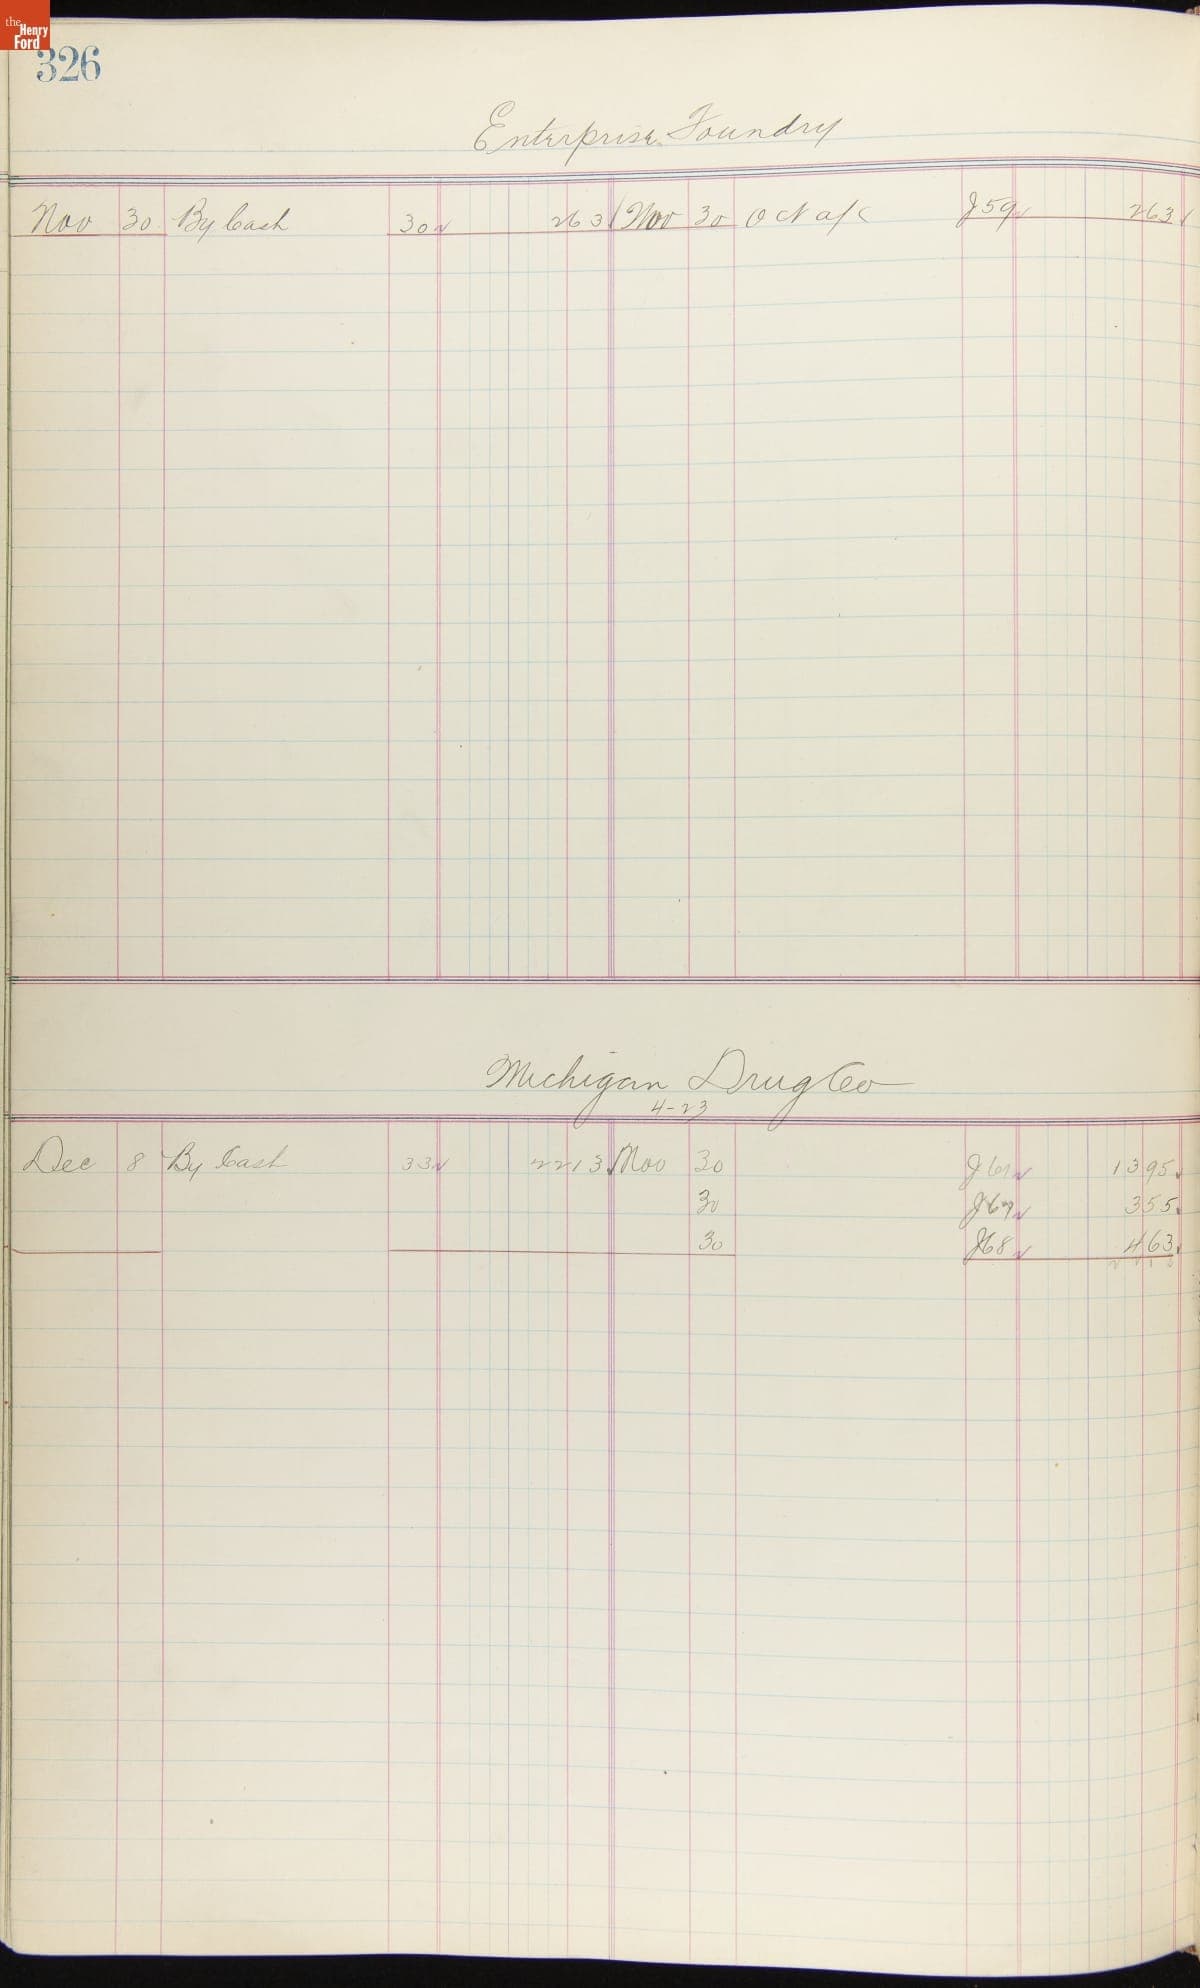 the Henry Ford
326
Enterprise Foundry
Nov 30 By Cash 30 263 Nov 30 Oct a/c J59 263
Michigan Drug Co
4-23
Dec 8 By Cash 33 2213 Nov 30 J61 1395
30 355
30 J68 463
2213